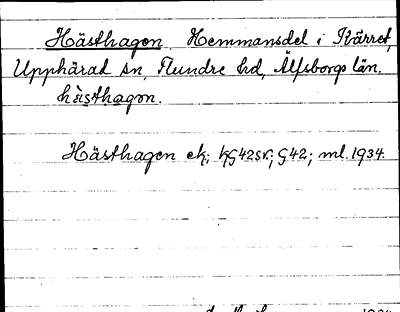 Hästhagen Hemmansdel i Kärret,
Upphärad sn, Flundre hd, Älfsborgs län.
hàsthagon.
Hästhagen ek; kg42sv; g42; ml. 1934.